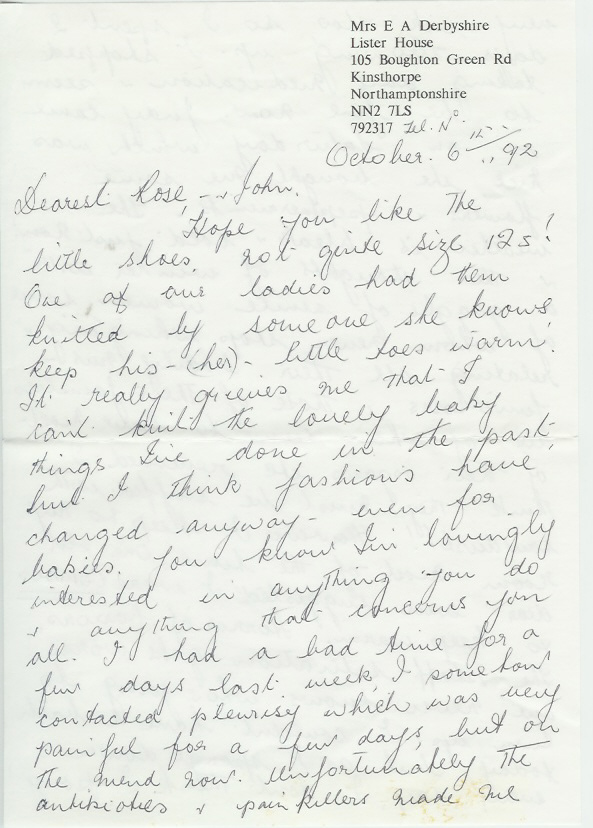 Mrs E A Derbyshire
Lister House
105 Boughton Green Rd
Kinsthorpe
Northamptonshire
NN2 7LS
792317 Tel. No
October. 6th 92
Dearest Rose, & John.
Hope you like the
little shoes, not quite size 12s!
One of our ladies had them
knitted by someone she knows,
keep his-(her)- little toes warm.
It really grieves me that I
can't knit the lovely baby
things I've done in the past
but I think fashions have
changed anyway - even for
babies. You know I'm lovingly
interested in anything you do
& anything that concerns you
all. I had a bad time for a
few days last week, I somehow
contacted pleurisy which was very
painful for a few days, but on
the mend now. Unfortunately the
antibiotics & pain killers made me